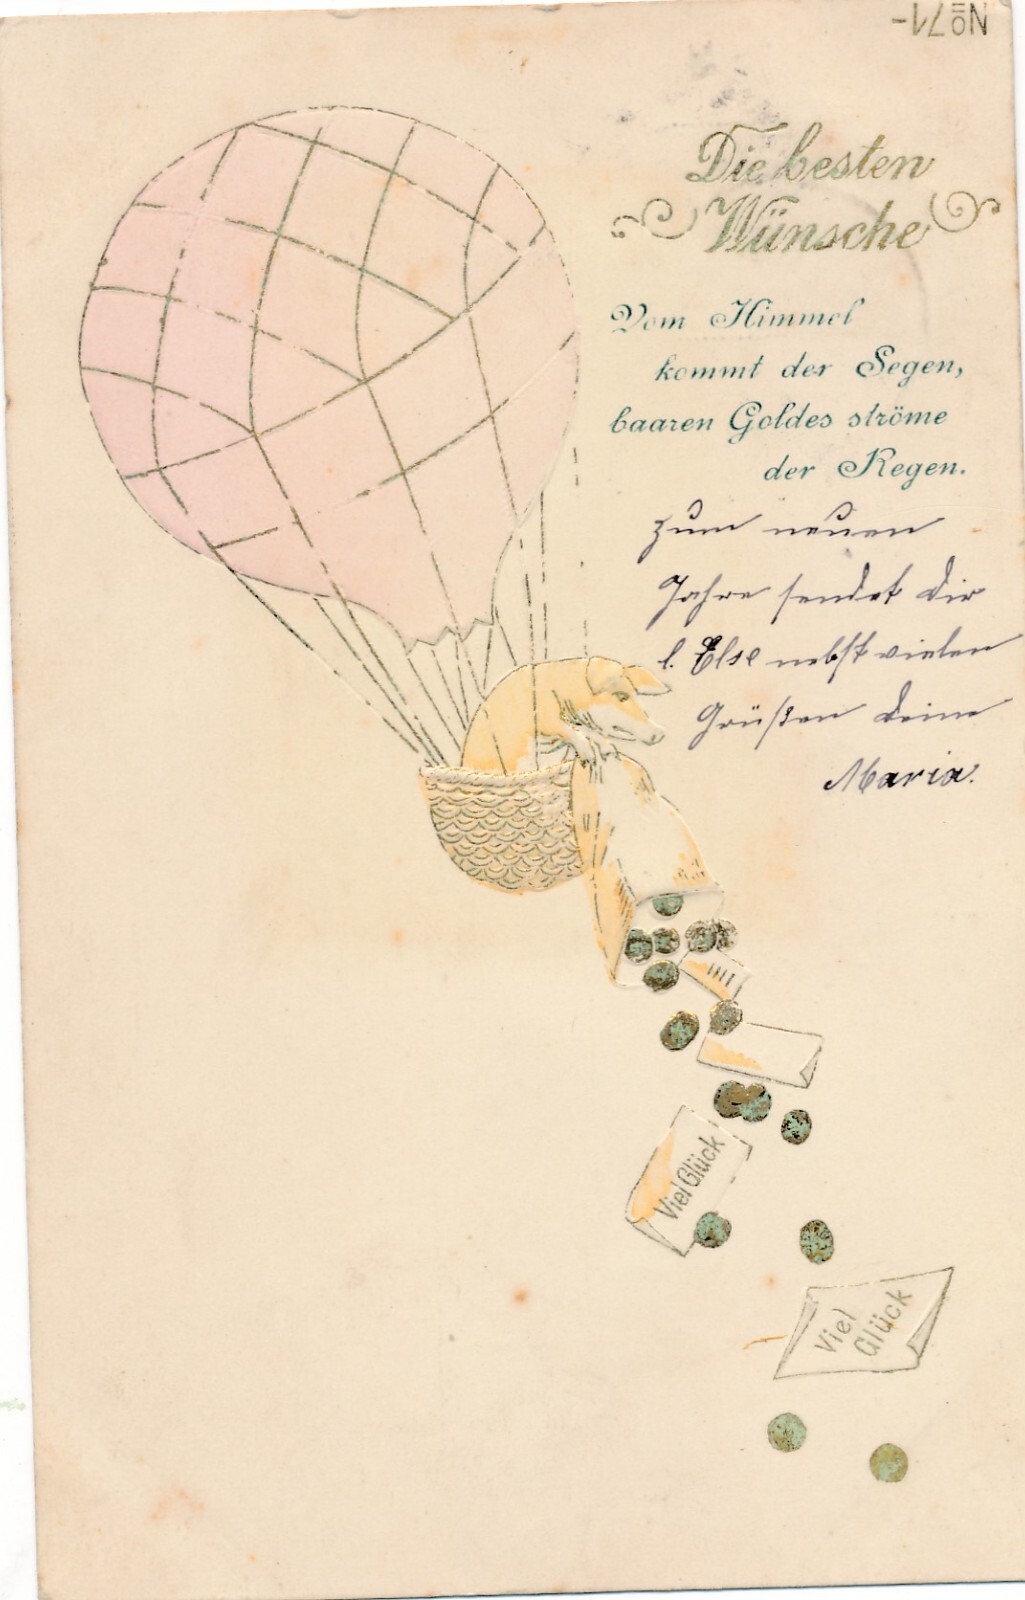 No 71-
Die besten
Wünsche
Vom Himmel
kommt der Segen,
baaren Goldes ströme
der Regen.
Zum neuen
Jahre sendet Dir
l. Else nebst vielen
Grüßen Deine
Maria.
Viel Glück
Viel
Glück